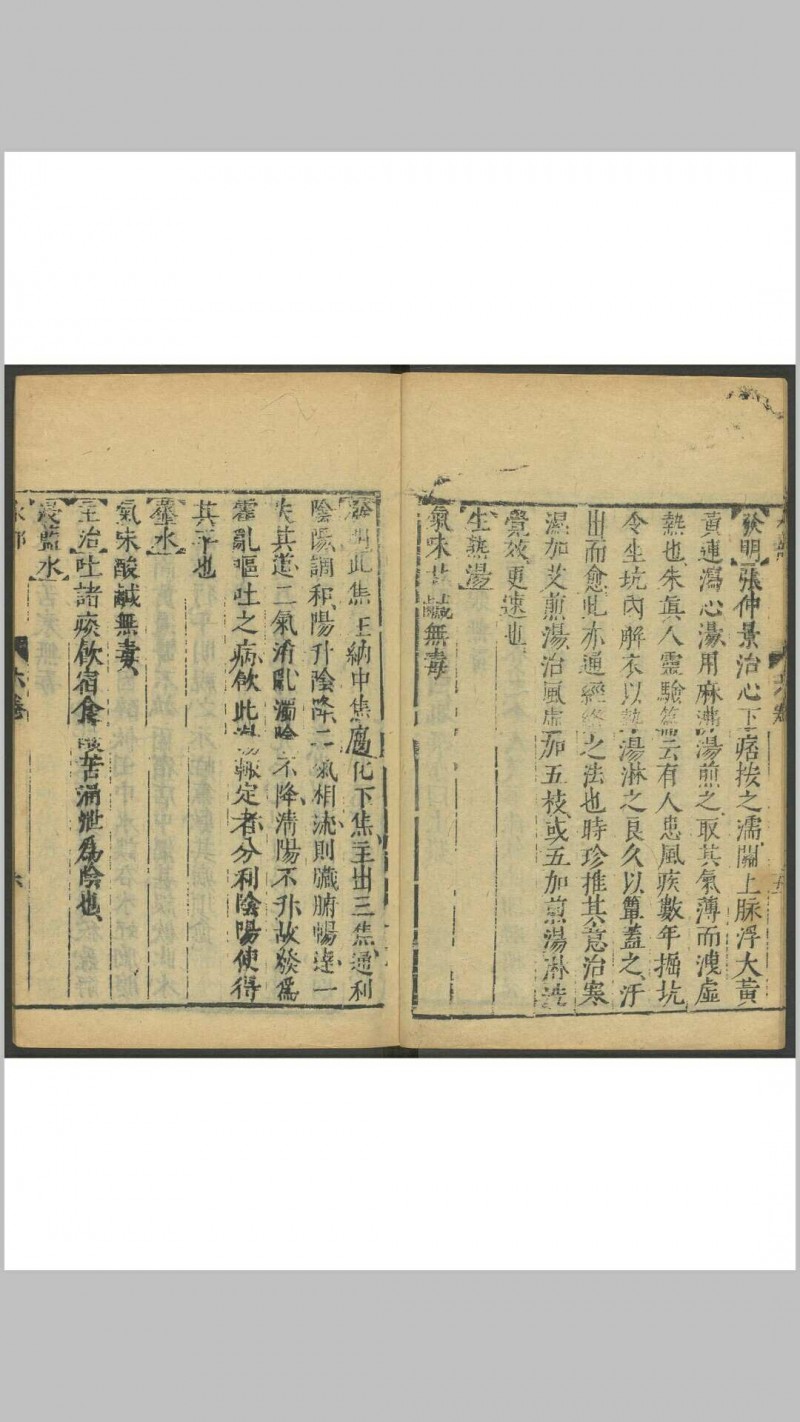 發明張仲景治心下痞按之濡關上脉浮大黃
黃連瀉心湯用麻沸湯煎之取其氣薄而洩虛
熱也朱眞人靈驗篇云有人患風疾數年掘坑
令坐坑內解衣以熱湯淋之良久以簟蓋之汗
出而愈此亦通經絡之法也時珍推其意治寒
濕加艾煎湯治風虛加五枝或五加煎湯淋洗
覺效更速也
生熟湯
氣味甘鹹無毒
發明此焦主納中焦腐化下焦主出三焦通利
陰陽調和陽升陰降二氣相流則臟腑暢達一
失其道二氣淆亂濁陰不降清陽不升故發爲
霍亂嘔吐之病飲此湯輒定者分利陰陽使得
其平也
虀水
氣味酸鹹無毒
主治吐諸痰飲宿食酸苦涌泄爲陰也
浸藍水
六卷